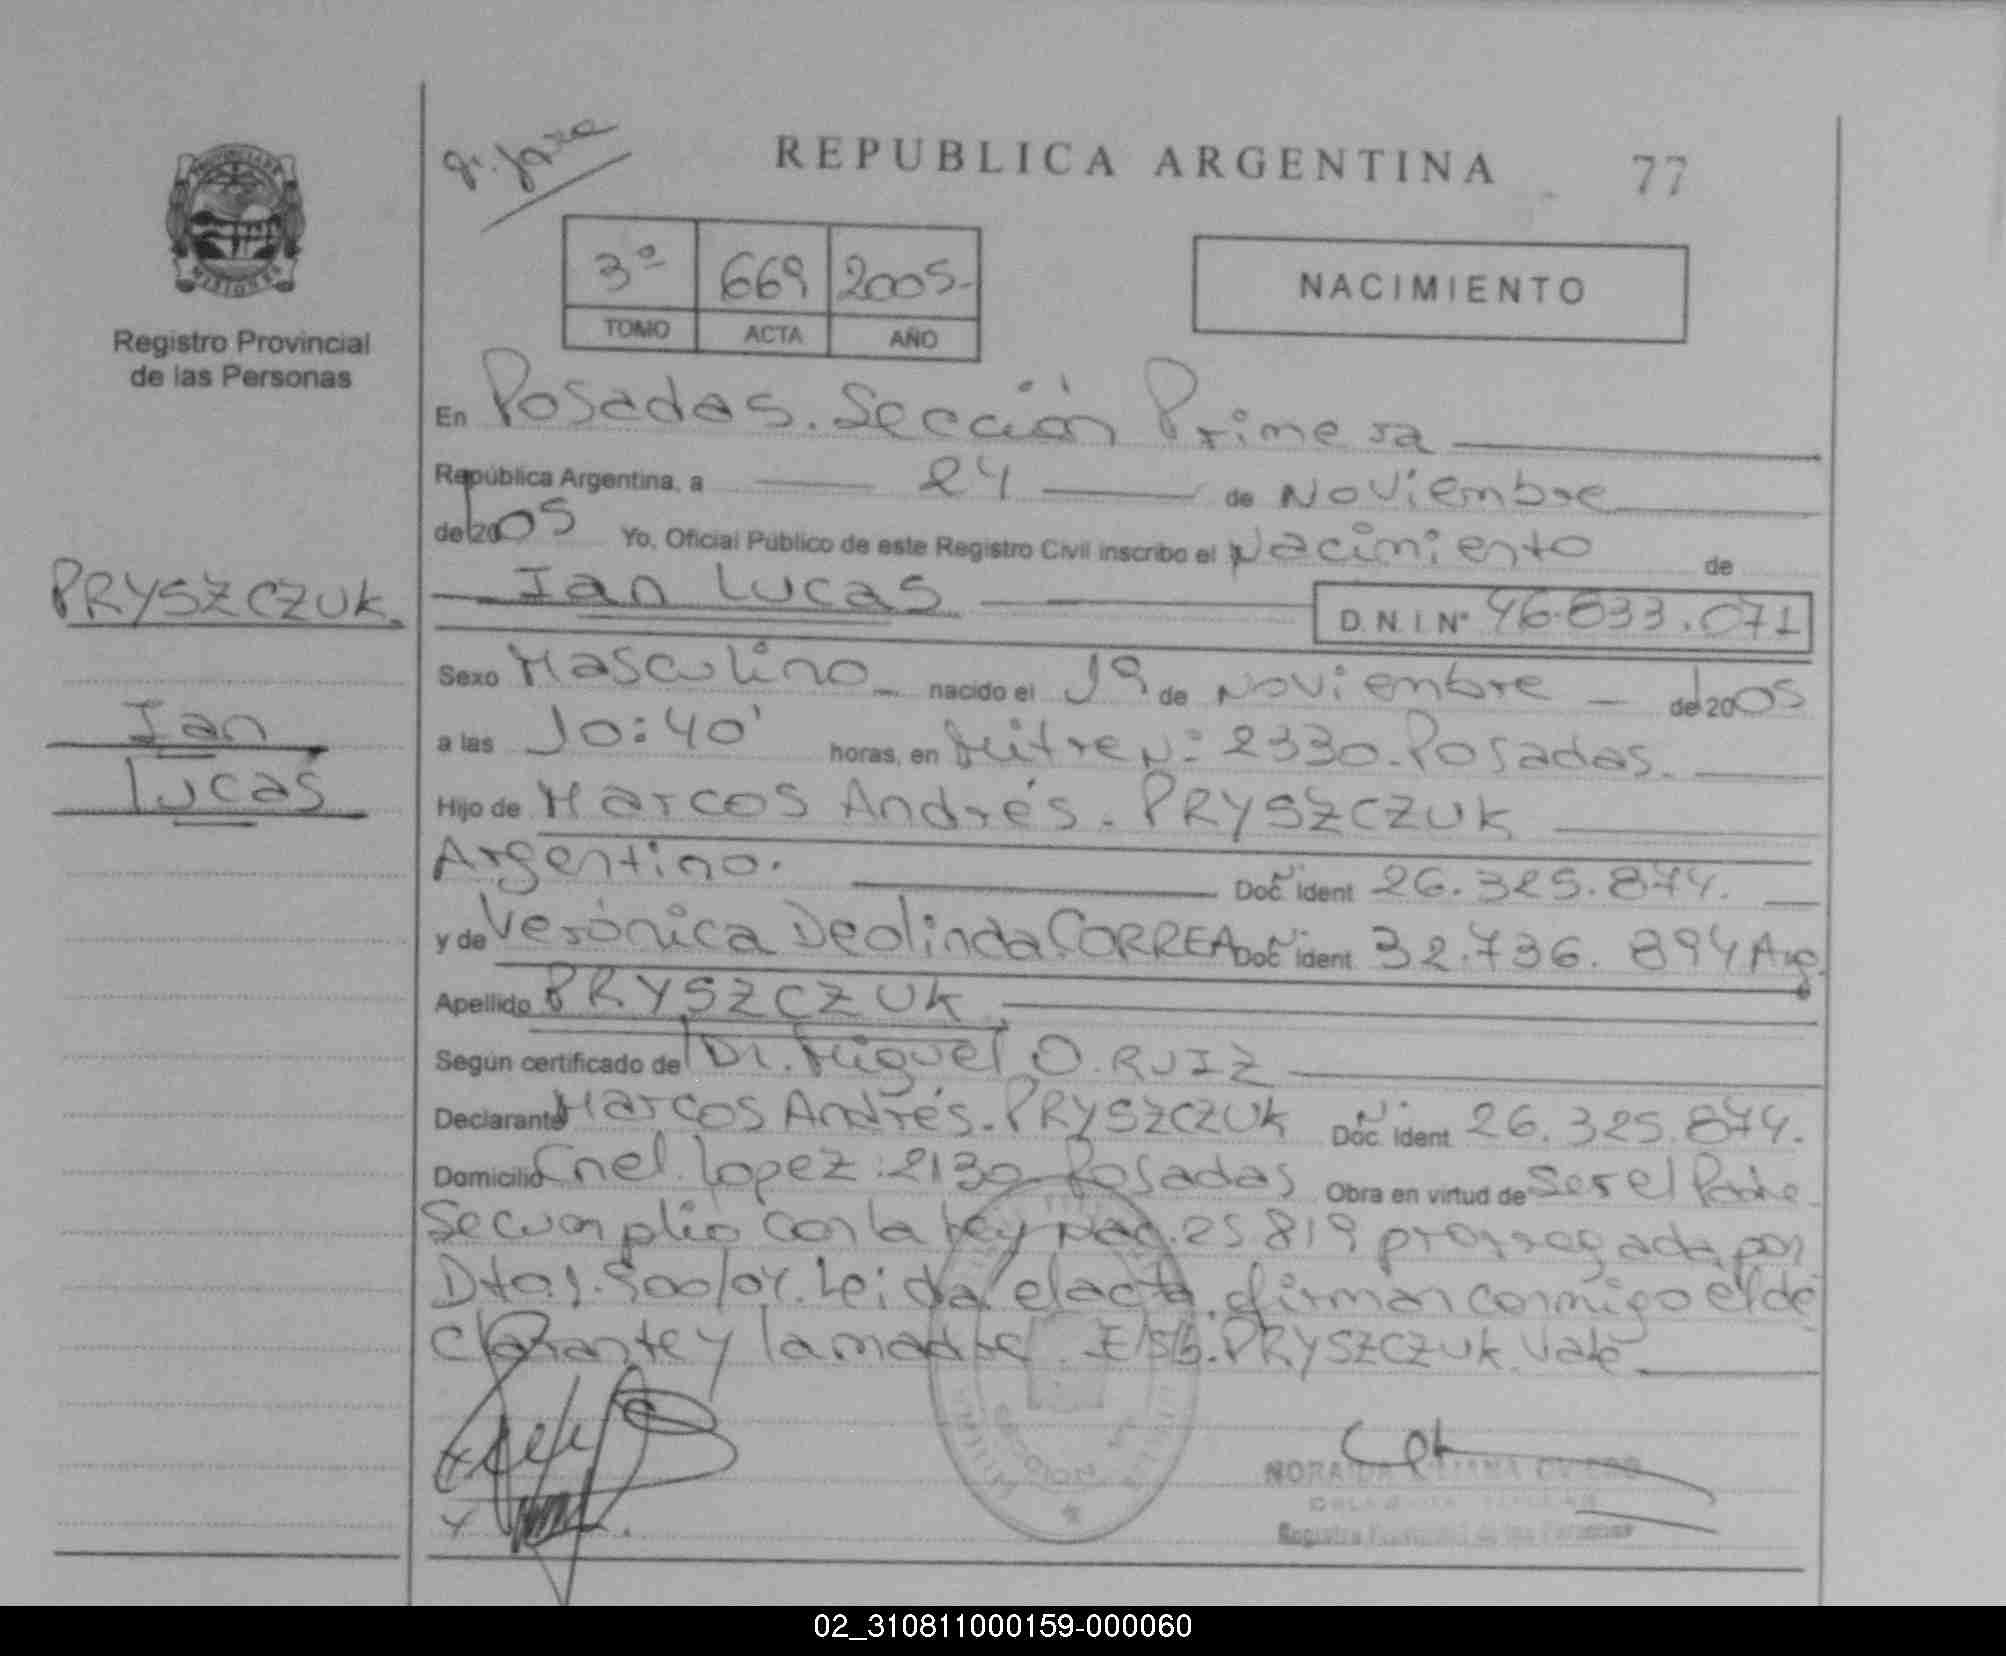 PROVINCIA DE
MISIONES
Registro Provincial
de las Personas
PRYSZCZUK.
Ian
Lucas
REPUBLICA ARGENTINA 77
3º 669 2005.-
TOMO ACTA AÑO
NACIMIENTO
En Posadas. Sección Primera
República Argentina, a 24 de Noviembre
de 2005 Yo, Oficial Público de este Registro Civil inscribo el Nacimiento de
Ian Lucas D.N.I Nº 46.833.071
Sexo Masculino nacido el 19 de Noviembre de 2005
a las 10:40' horas, en Mitre Nº 2330. Posadas.
Hijo de Marcos Andrés. PRYSZCZUK
Argentino. Doc. ident 26.325.874.
y de Verónica Deolinda. CORREA Doc. ident 32.736.894 Arg.
Apellido PRYSZCZUK
Según certificado de Dr. Miguel O. RUIZ
Declarante Marcos Andrés. PRYSZCZUK Doc. ident 26.325.874.
Domicilio Cnel. Lopez: 2130 Posadas Obra en virtud de Ser el Padre
Se cumplio con la Ley Nac. 25819 prorrogada por
Dto. 500/04. Leida el acta, firman conmigo el de
clarante y la madre. E/S/b. PRYSZCZUK. Vale
Registro Provincial de las Personas
02_310811000159-000060